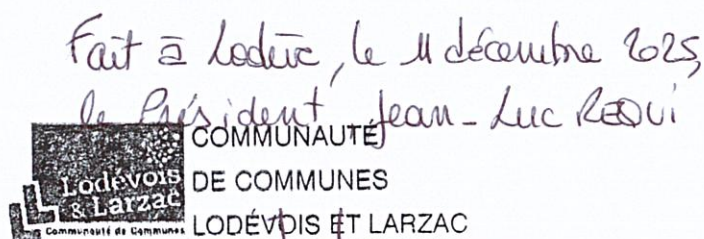 Fait à Lodève, le 11 décembre 2025,
le Président Jean-Luc REQUI
COMMUNAUTÉ
Lodévois
& Larzac
Communauté de Communes
DE COMMUNES
LODÉVOIS ET LARZAC